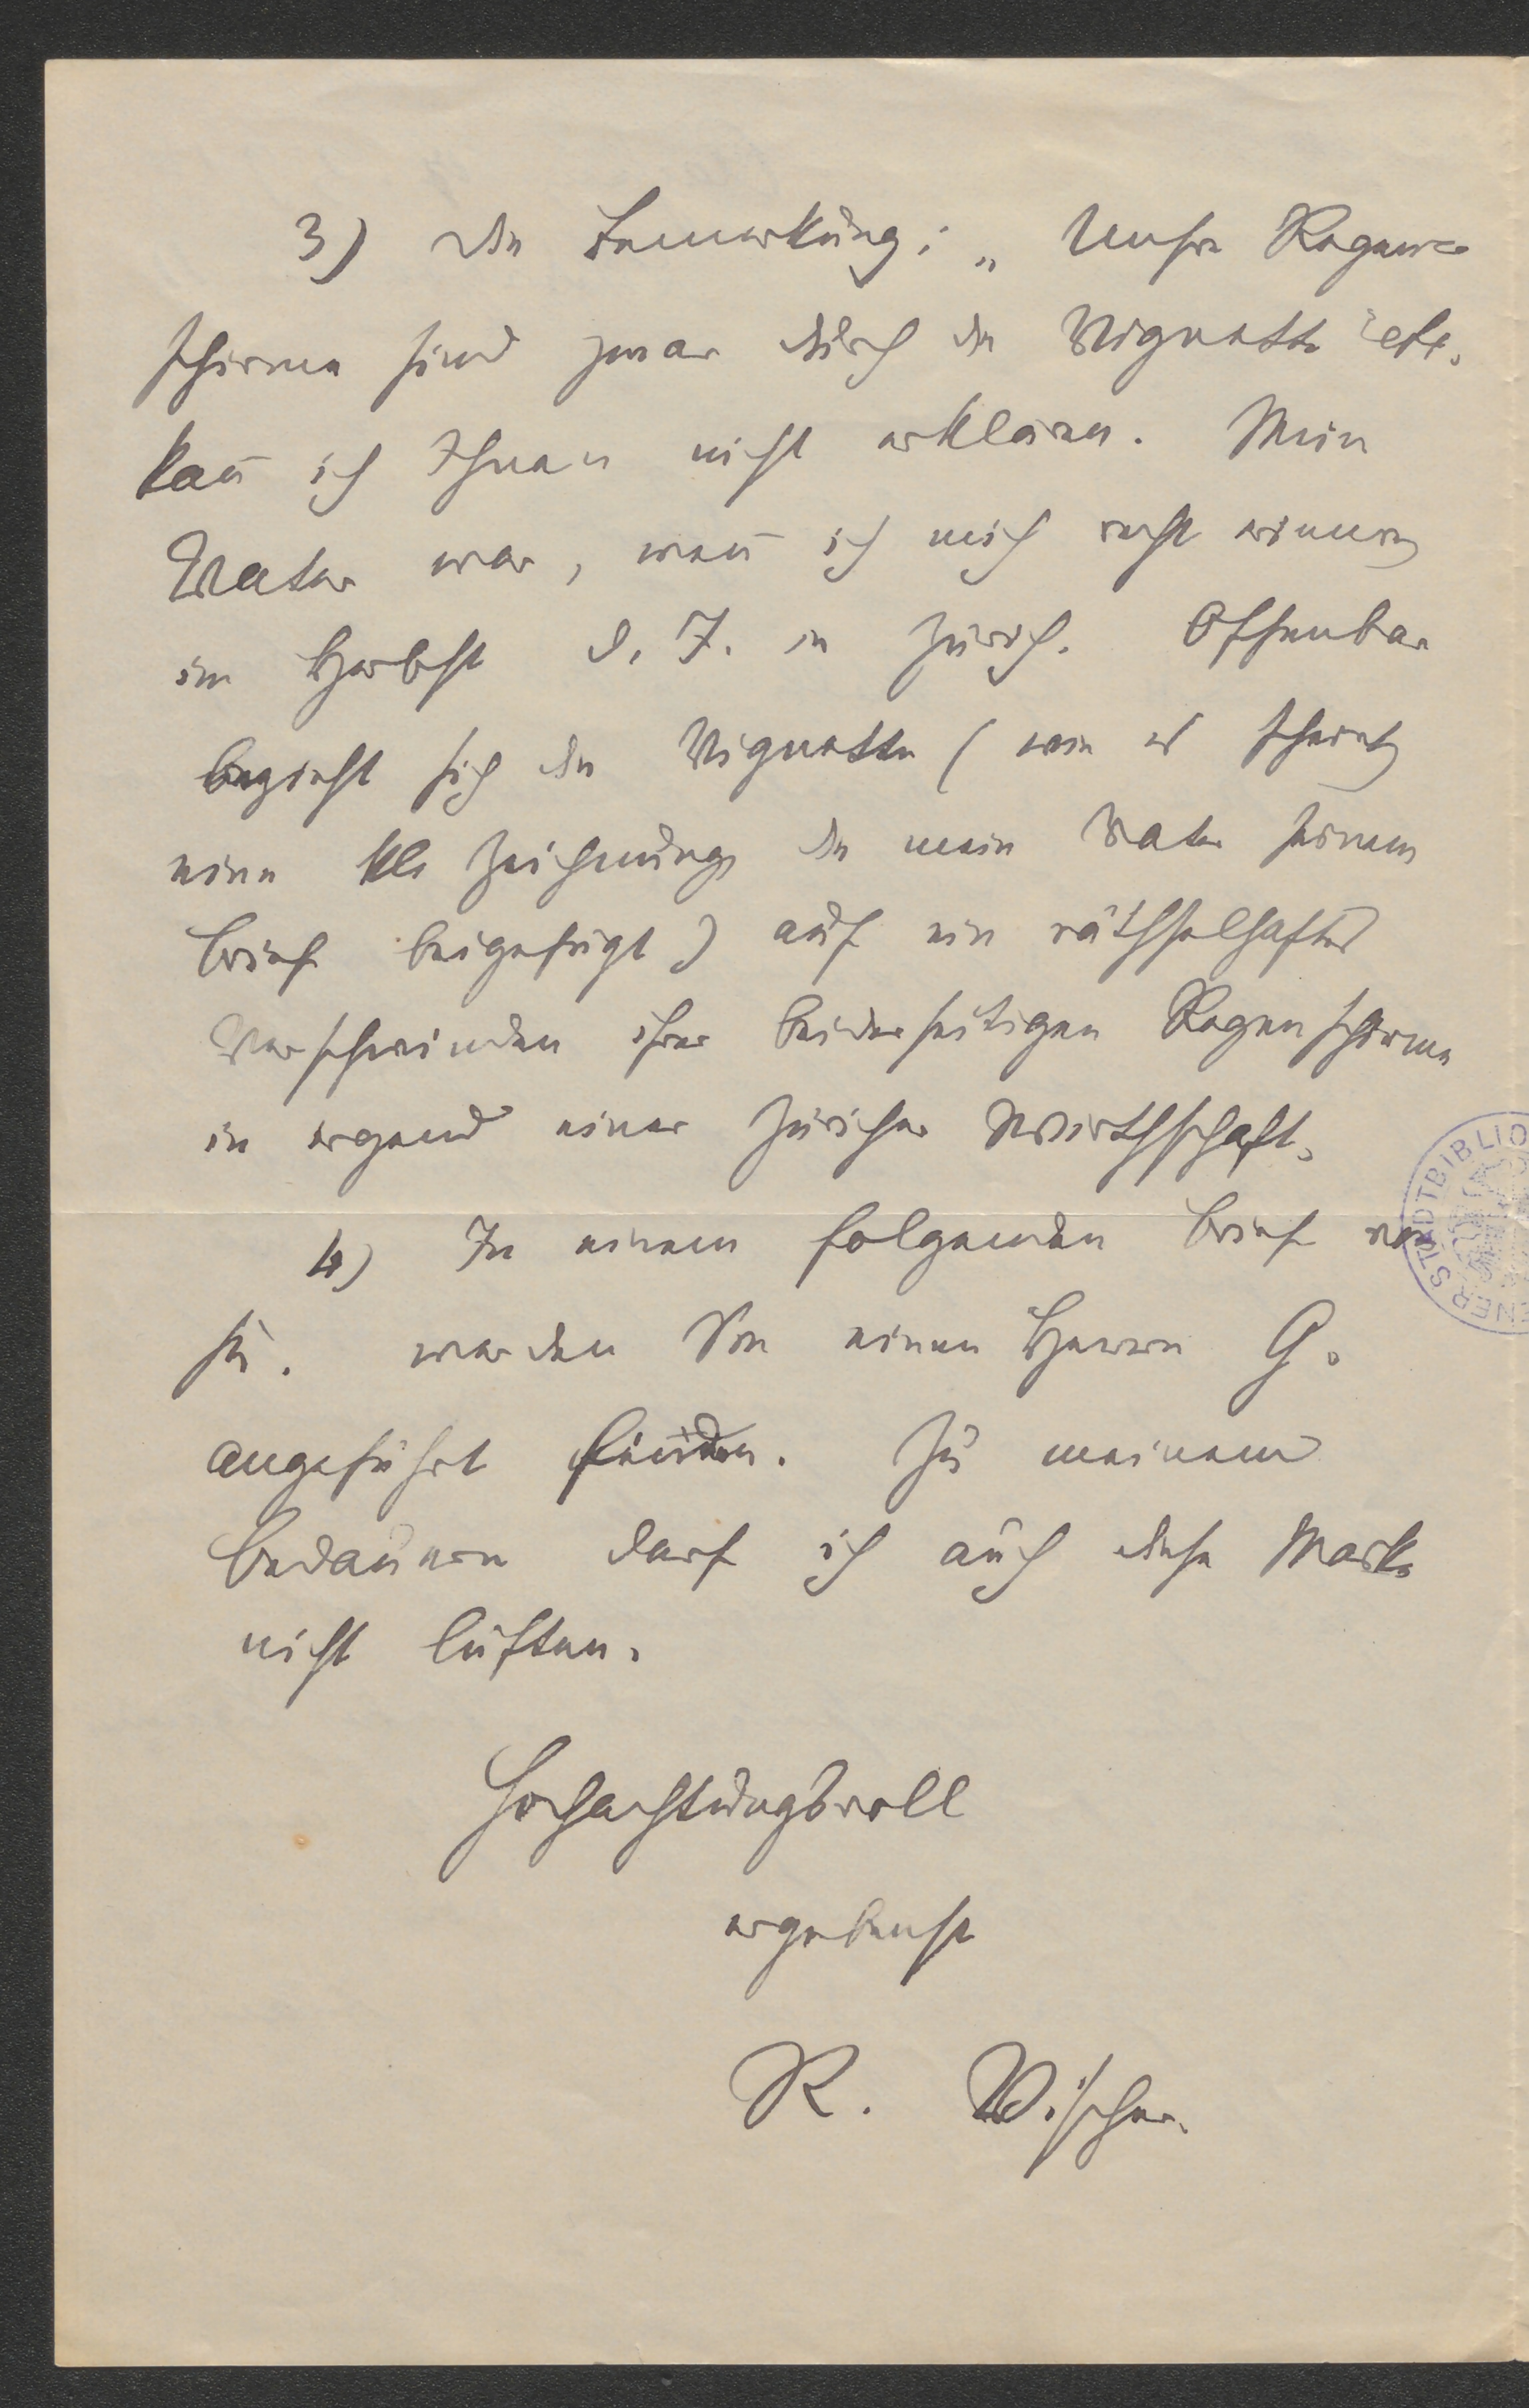 3) Die Bemerkung: „Unsre Regen=
schirme sind zwar durch die Vignette etc.
kan̄ ich Ihnen nicht erklären. Mein
Vater war, wen̄ ich mich recht erinnere
im Herbst d. J. in Zürich. Offenbar
bezieht sich die Vignette (wie es scheint
eine kle Zeichnung die mein Vater seinem
Brief beigefügt) auf ein räthselhaftes
Verschwinden ihrer beiderseitigen Regenschirme
in irgend einer Züricher Wirthschaft.
4) In einem folgenden Brief von
St. werden Sie einen Herrn G.
angeführt finden. Zu meinem
Bedauern darf ich auch diese Maske
nicht lüften.
Hochachtungsvoll
ergebenst
R. Vischer.